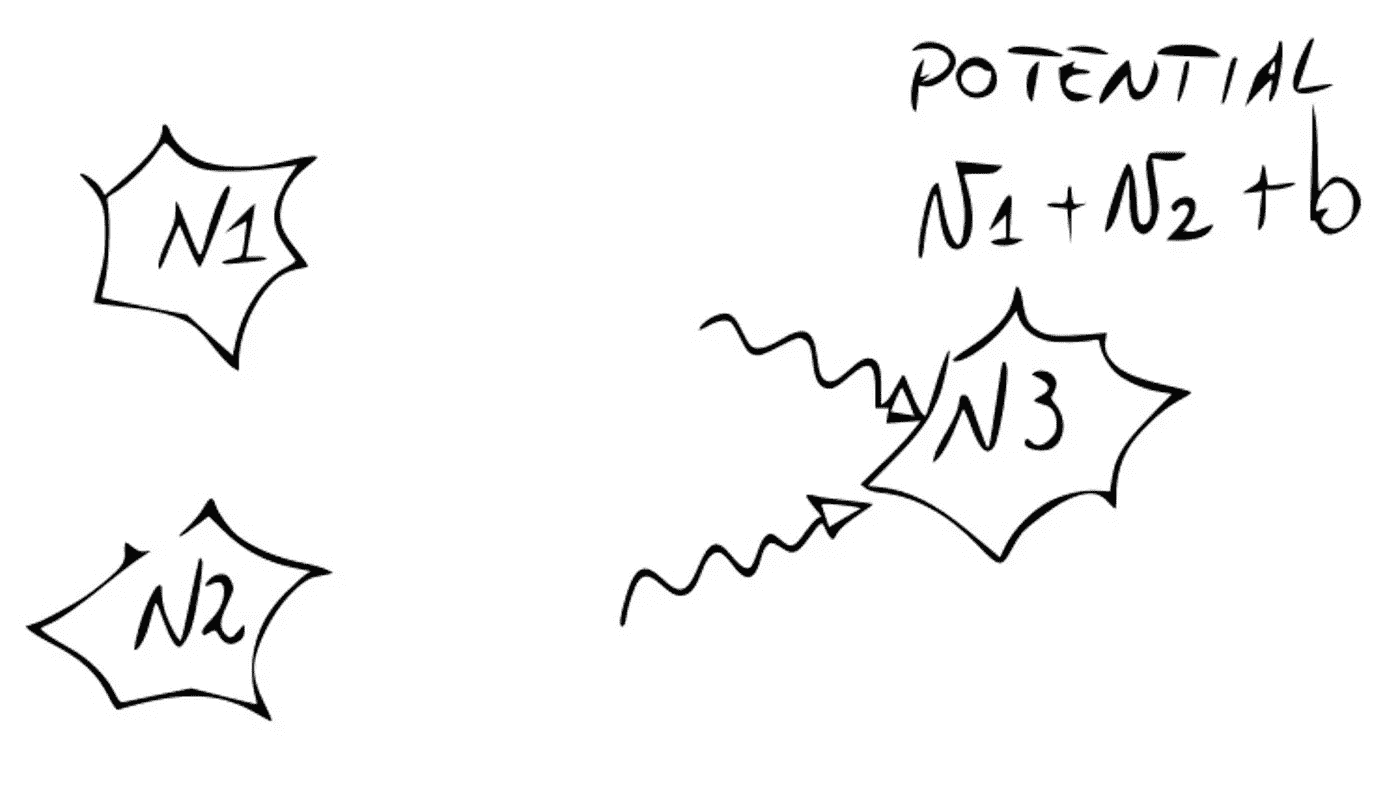 POTENTIAL
N1 + N2 + b
N1
N3
N2